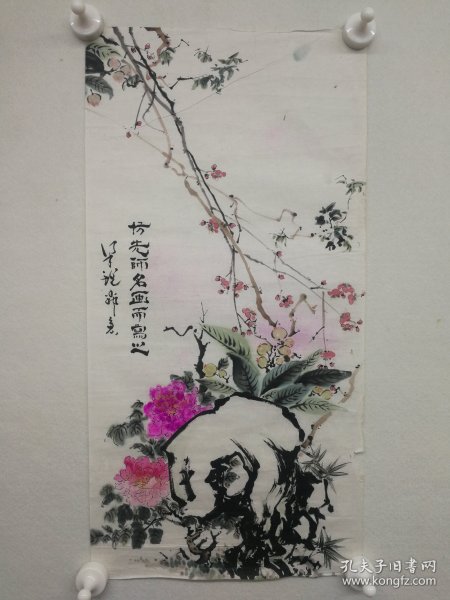 仿先师名画而写之
孔夫子旧书网
www.kongfz.com